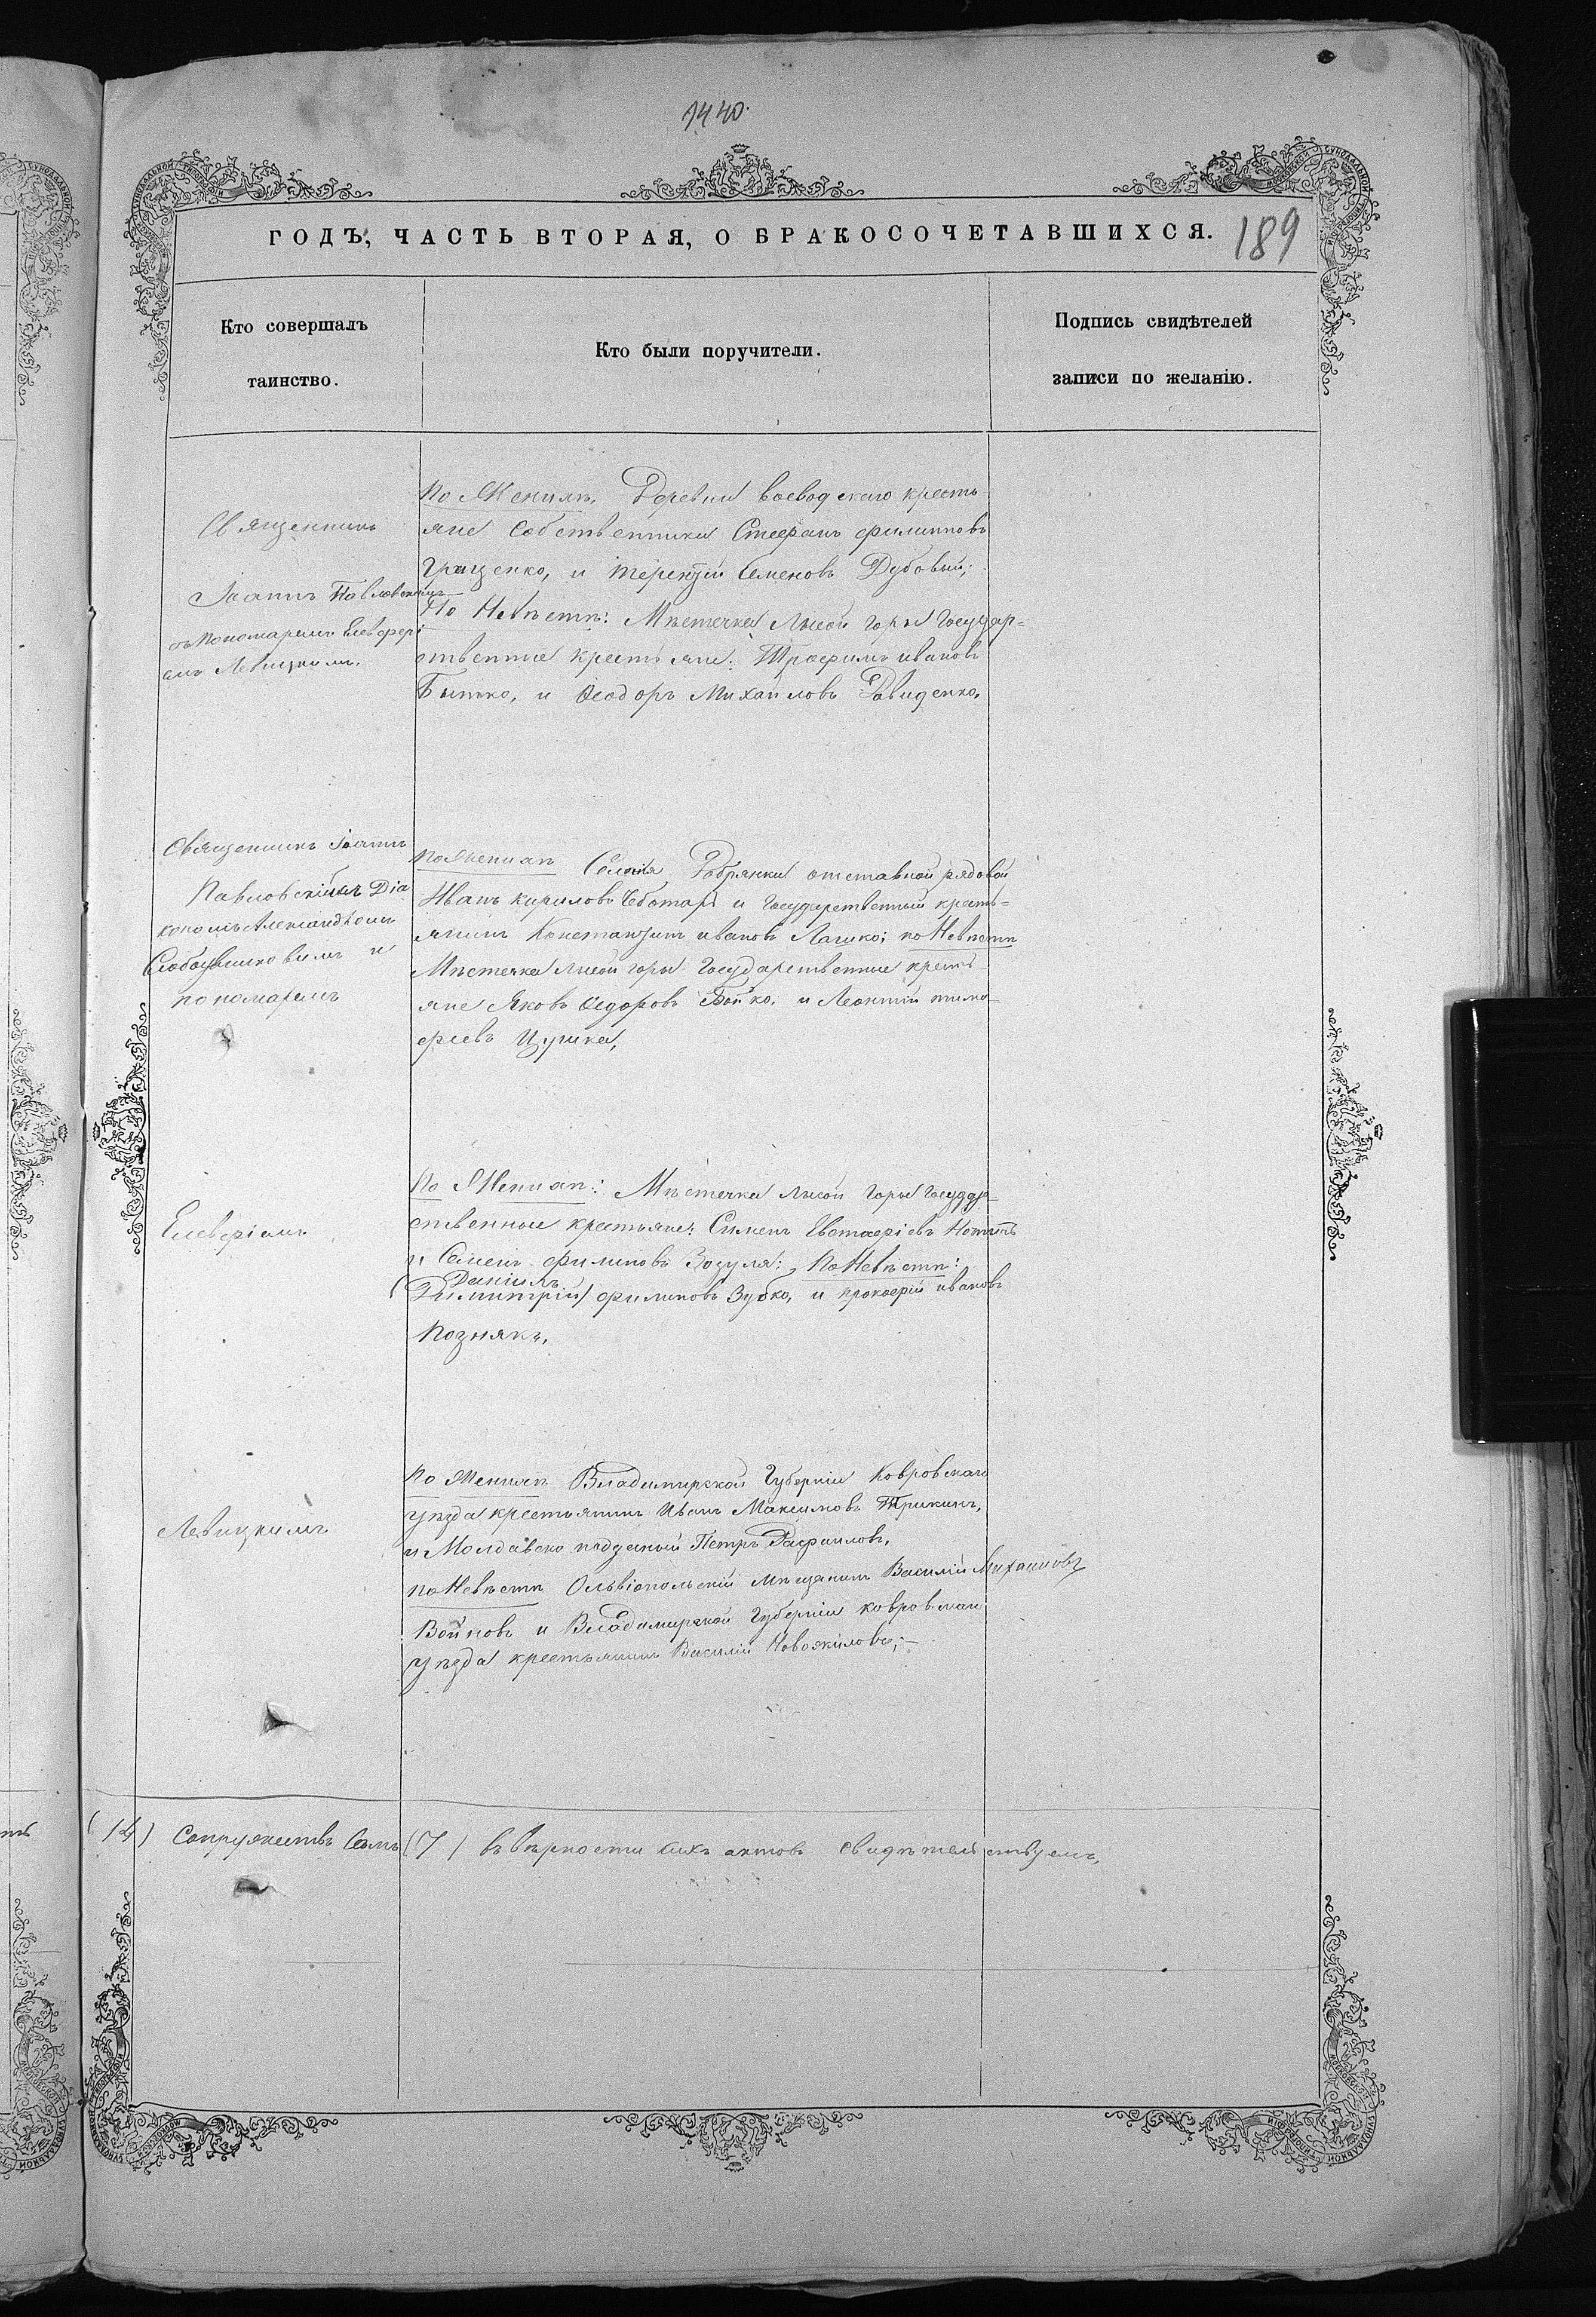 1440.
ГОДЪ, ЧАСТЬ ВТОРАЯ, О БРАКОСОЧЕТАВШИХСЯ.
189
Кто совершалъ
таинство.
Кто были поручители.
Подпись свидѣтелей
записи по желанію.
Священникъ
Іоаннъ Павловскій
съ Пономаремъ Елевфері
емъ Левицкимъ.
По Женихѣ. Деревни Воеводскаго кресть
яне Собственники Стефанъ Филипповъ
Грищенко, и Терентій Семеновъ Дубовый;
По Невѣстѣ: Мѣстечка Лысой Горы Государ=
ственные крестьяне: Трофимъ Ивановъ
Бытько, и Ѳеодоръ Михайловъ Давиденко.
Священникъ Іоаннъ
Павловскій съ Діа
кономъ Александромъ
и
пономаремъ
По Женихѣ Селенія Добрянки отставной рядовой
Иванъ Кириловъ Чеботарь и Государственный кресть=
янинъ Константинъ Ивановъ по Невѣстѣ
Мѣстечка Лысой Горы Государственные кресть
яне Яковъ Ѳедоровъ Бойко, и Леонтій Тимо
феевъ
Елевферіемъ
По Женихѣ: Мѣстечка Лысой Горы Государ=
ственные крестьяне: Симеонъ Евстафіевъ
и Семенъ Филиповъ Зозуля: По Невѣстѣ:
Даніилъ
(Димитрій) Филиповъ Зубко, и Прокофій Ивановъ
Познякъ.
Левицкимъ
По Женихѣ Владимирской Губерніи Ковровскаго
уѣзда крестьянинъ Иванъ Максимовъ Трикинъ,
и Молдавско подданый Петръ Рафаиловъ,
по Невѣстѣ Ольвіопольскій мѣщанинъ Василій Михайловъ
Войновъ и Владимирской Губерніи Ковровскаго
уѣзда крестьянинъ Василій Новожиловъ;—
(14) Супружествъ Семь (7) въ вѣрности сихъ актовъ свидѣтельствуемъ,